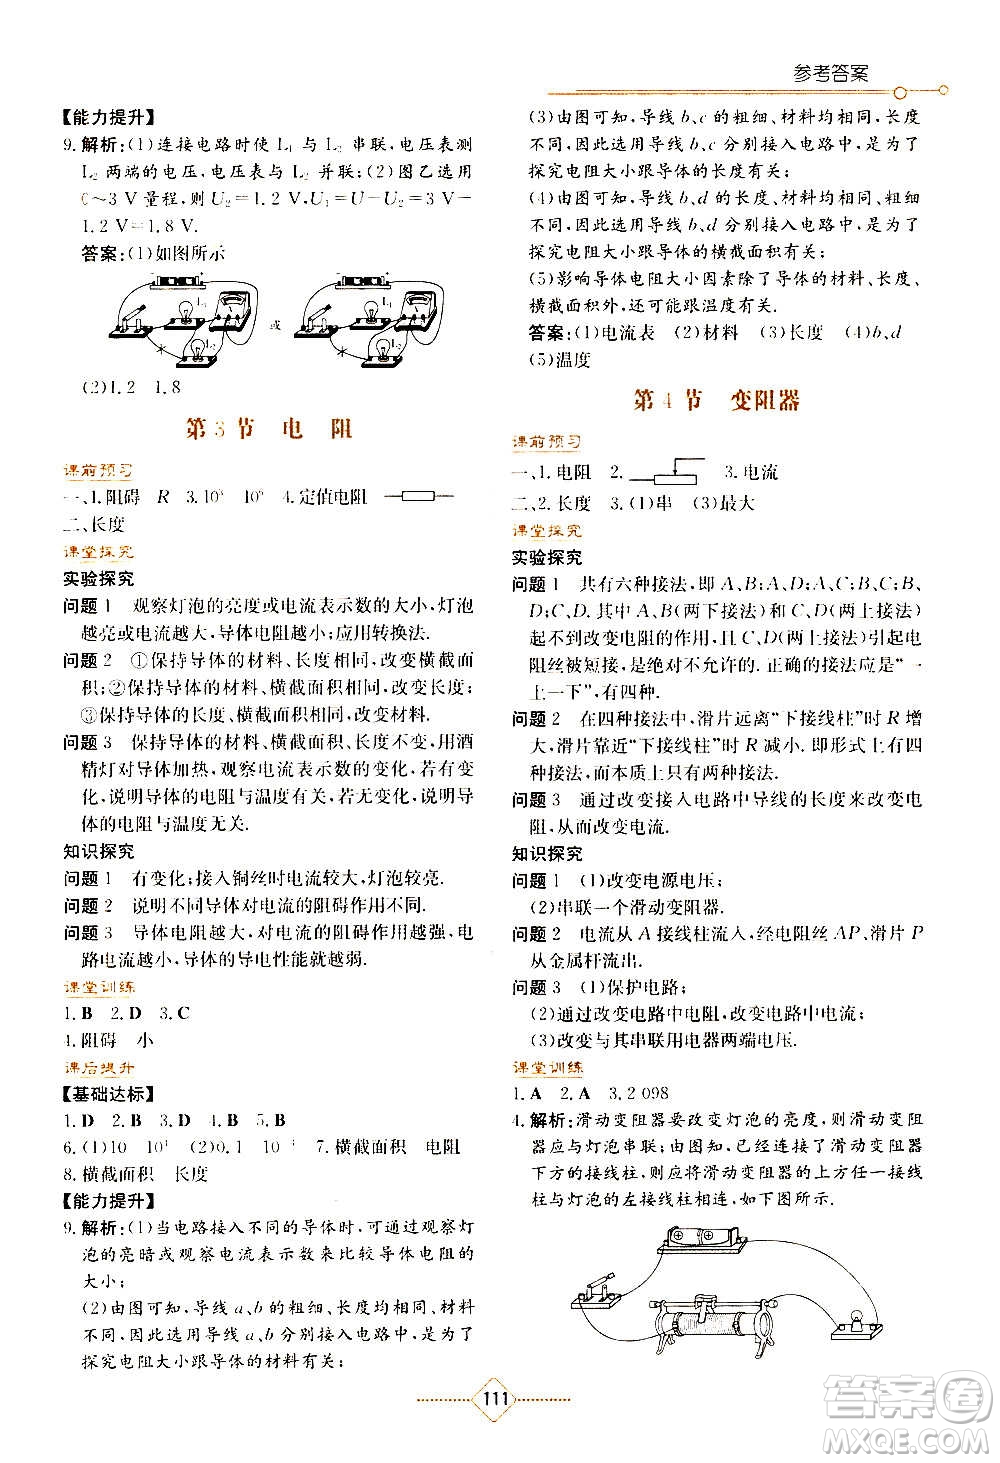 参考答案
【能力提升】
9. 解析:(1)连接电路时使 L₁ 与 L₂ 串联,电压表测
L₂ 两端的电压,电压表与 L₂ 并联;(2)图乙选用
0～3 V 量程,则 U₂=1.2 V,U₁=U－U₂=3 V－
1.2 V=1.8 V.
答案:(1)如图所示
L₁
L₂
或
L₁
L₂
(2)1.2 1.8
第 3 节 电 阻
课前预习
一、1.阻碍 R 3.10³ 10⁶ 4.定值电阻
二、长度
课堂探究
实验探究
问题 1 观察灯泡的亮度或电流表示数的大小,灯泡
越亮或电流越大,导体电阻越小;应用转换法.
问题 2 ①保持导体的材料、长度相同,改变横截面
积;②保持导体的材料、横截面积相同,改变长度;
③保持导体的长度、横截面积相同,改变材料.
问题 3 保持导体的材料、横截面积、长度不变,用酒
精灯对导体加热,观察电流表示数的变化,若有变
化,说明导体的电阻与温度有关,若无变化,说明导
体的电阻与温度无关.
知识探究
问题 1 有变化;接入铜丝时电流较大,灯泡较亮.
问题 2 说明不同导体对电流的阻碍作用不同.
问题 3 导体电阻越大,对电流的阻碍作用越强,电
路电流越小,导体的导电性能就越弱.
课堂训练
1. B 2. D 3. C
4. 阻碍 小
课后提升
【基础达标】
1. D 2. B 3. D 4. B 5. B
6. (1)10 (2)0.1 7. 横截面积 电阻
8. 横截面积 长度
【能力提升】
9. 解析:(1)当电路接入不同的导体时,可通过观察灯
泡的亮暗或观察电流表示数来比较导体电阻的
大小;
(2)由图可知,导线 a、b 的粗细、长度均相同,材料
不同,因此选用导线 a、b 分别接入电路中,是为了
探究电阻大小跟导体的材料有关;
(3)由图可知,导线 b、c 的粗细、材料均相同,长度
不同,因此选用导线 b、c 分别接入电路中,是为了
探究电阻大小跟导体的长度有关;
(4)由图可知,导线 b、d 的长度、材料均相同,粗细
不同,因此选用导线 b、d 分别接入电路中,是为了
探究电阻大小跟导体的横截面积有关;
(5)影响导体电阻大小因素除了导体的材料、长度、
横截面积外,还可能跟温度有关.
答案:(1)电流表 (2)材料 (3)长度 (4)b、d
(5)温度
第 4 节 变阻器
课前预习
一、1.电阻 2. 3.电流
二、2.长度 3.(1)串 (3)最大
课堂探究
实验探究
问题 1 共有六种接法,即 A、B;A、D;A、C;C、B;B、
D;C、D. 其中 A、B(两下接法)和 C、D(两上接法)
起不到改变电阻的作用,且 C、D(两上接法)引起电
阻丝被短接,是绝对不允许的.正确的接法应是“一
上一下”,有四种.
问题 2 在四种接法中,滑片远离“下接线柱”时 R 增
大,滑片靠近“下接线柱”时 R 减小. 即形式上有四
种接法,而本质上只有两种接法.
问题 3 通过改变接入电路中导线的长度来改变电
阻,从而改变电流.
知识探究
问题 1 (1)改变电源电压;
(2)串联一个滑动变阻器.
问题 2 电流从 A 接线柱流入,经电阻丝 AP、滑片 P
从金属杆流出.
问题 3 (1)保护电路;
(2)通过改变电路中电阻,改变电路中电流;
(3)改变与其串联用电器两端电压.
课堂训练
1. A 2. A 3. 2 098
4. 解析:滑动变阻器要改变灯泡的亮度,则滑动变阻
器应与灯泡串联;由图知,已经连接了滑动变阻器
下方的接线柱,则应将滑动变阻器的上方任一接线
柱与灯泡的左接线柱相连,如下图所示.
111
答案卷
MXQE.COM